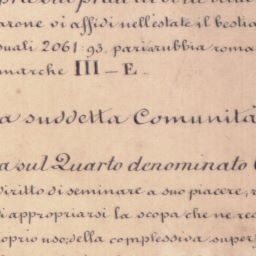 arone vi affidi nell'estate il bestia
suali 2061:93, pari a rubbia roma
marche III – E.
a suddetta Comunità
a sul Quarto denominato
diritto di seminare a suo piacere, r
di appropriarsi la scopa che ne rec
roprio uso; della complessiva super